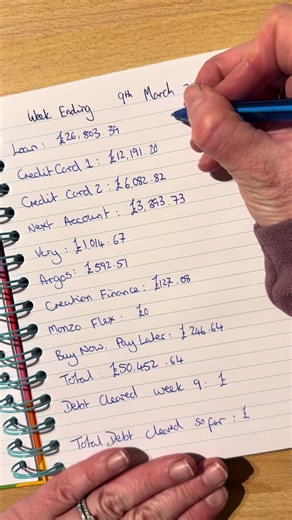 Week Ending 9th March
Loan: £26,803.39
Credit Card 1: £12,191.20
Credit Card 2: £6,082.82
Next Account: £3,393.73
Very: £1,014.67
Argos: £592.51
Creation Finance: £127.08
Monzo Flex: £0
Buy Now, Pay Later: £246.64
Total: £50,452.64
Debt Cleared week 9: £
Total Debt cleared so far: £